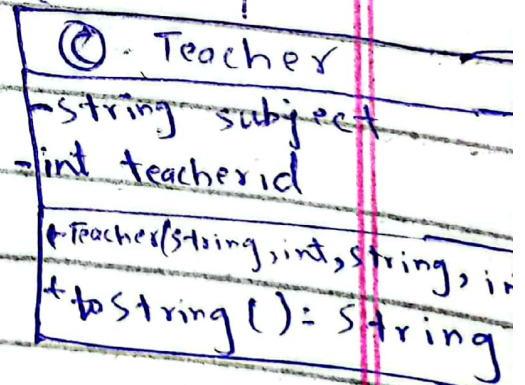 © . Teacher
-string subject
-int teacherid
+Teacher(string,int,string,
+toString():String